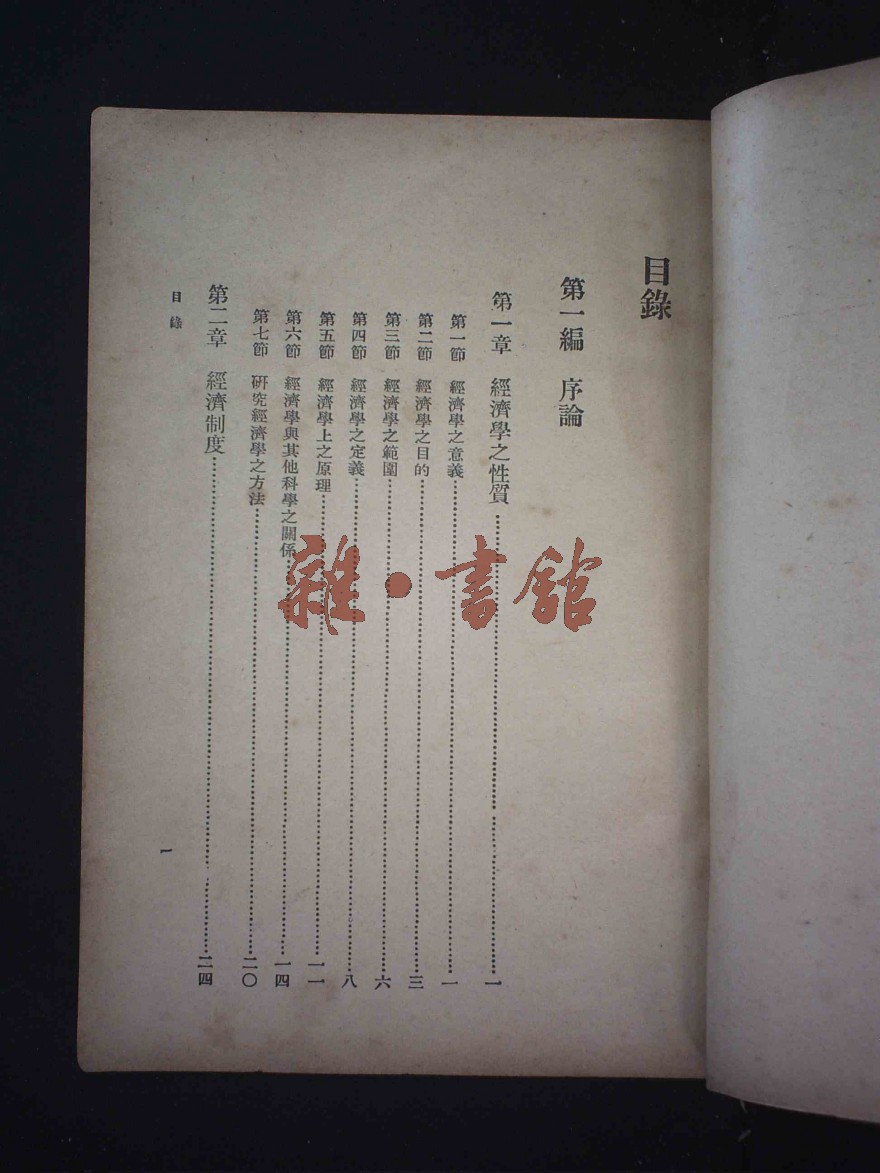 目錄
第一編 序論
第一章 經濟學之性質……一
第一節 經濟學之意義……一
第二節 經濟學之目的……三
第三節 經濟學之範圍……六
第四節 經濟學之定義……八
第五節 經濟學上之原理……一一
第六節 經濟學與其他科學之關係……一四
第七節 研究經濟學之方法……二〇
第二章 經濟制度……二四
目錄
一
雜·書館